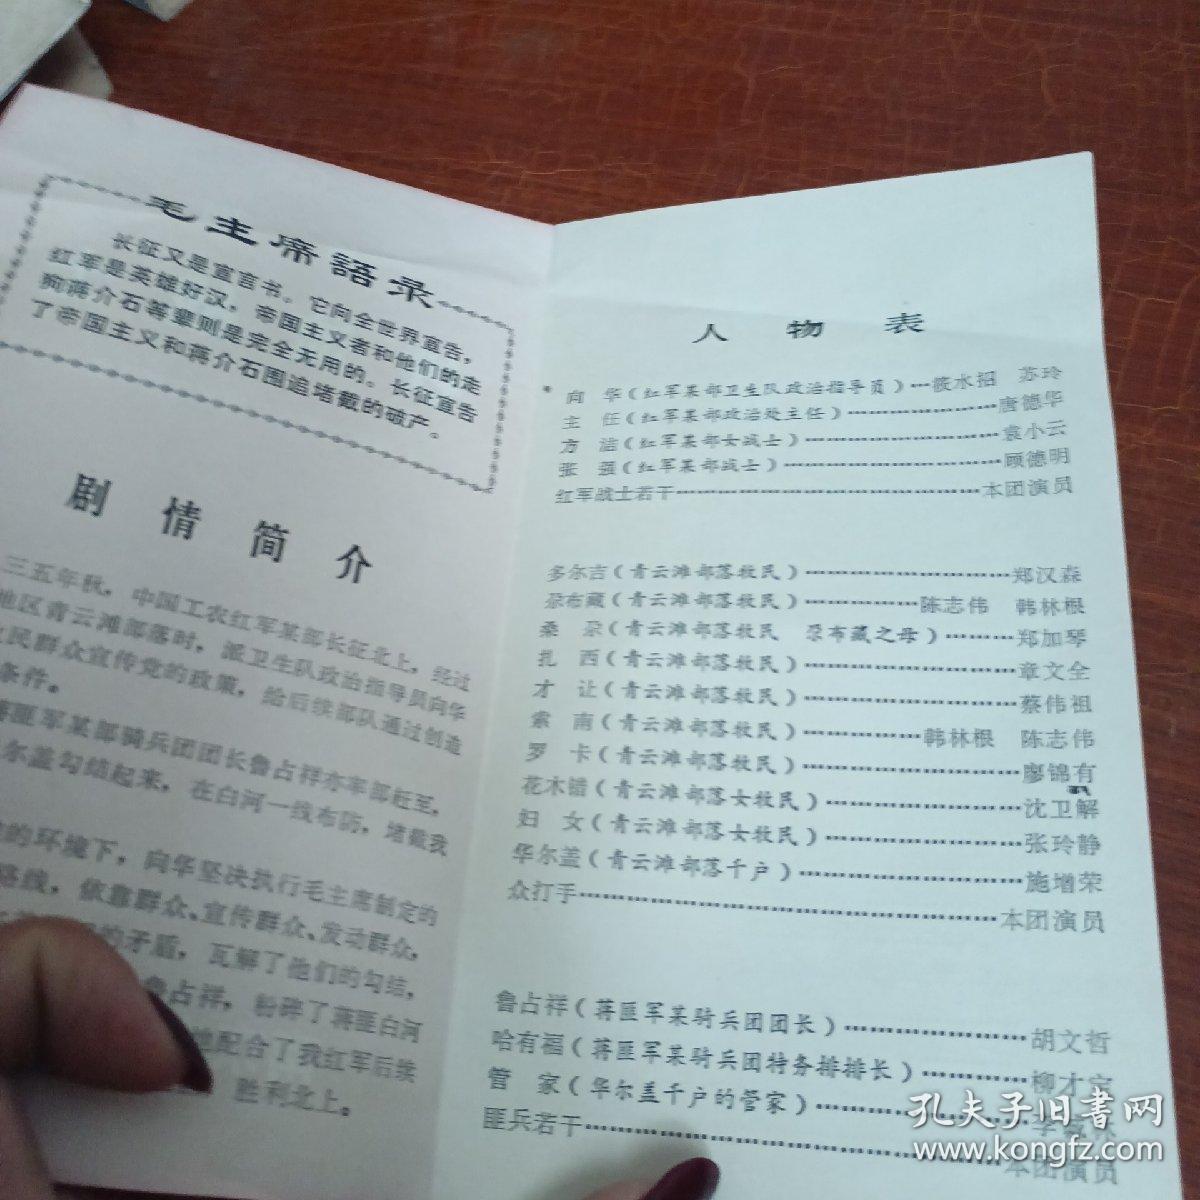 毛主席語录
长征又是宣言书。它向全世界宣告，
红军是英雄好汉，帝国主义者和他们的走
狗蒋介石等辈则是完全无用的。长征宣告
了帝国主义和蒋介石围追堵截的破产。
剧情简介
三五年秋，中国工农红军某部长征北上，经过
地区青云滩部落时，派卫生队政治指导员向华
民群众宣传党的政策，给后续部队通过创造
条件。
蒋匪军某部骑兵团团长鲁占祥亦率部赶至，
尔盖勾结起来，在白河一线布防，堵截我
的环境下，向华坚决执行毛主席制定的
路线，依靠群众、宣传群众、发动群众，
的矛盾，瓦解了他们的勾结，
鲁占祥，粉碎了蒋匪白河
地配合了我红军后续
胜利北上。
人物表
向华（红军某部卫生队政治指导员）…筱水招 苏玲
主任（红军某部政治处主任）………………唐德华
方洁（红军某部女战士）……………………袁小云
张强（红军某部战士）………………………顾德明
红军战士若干…………………………………本团演员
多尔吉（青云滩部落牧民）…………………………郑汉森
尕布藏（青云滩部落牧民）……………陈志伟 韩林根
桑尕（青云滩部落牧民 尕布藏之母）………郑加琴
扎西（青云滩部落牧民）…………………………章文全
才让（青云滩部落牧民）…………………………蔡伟祖
索南（青云滩部落牧民）……………韩林根 陈志伟
罗卡（青云滩部落牧民）…………………………廖锦有
花木错（青云滩部落女牧民）……………………沈卫解
妇女（青云滩部落女牧民）………………………张玲静
华尔盖（青云滩部落千户）………………………施增荣
众打手………………………………………………本团演员
鲁占祥（蒋匪军某骑兵团团长）…………………胡文哲
哈有福（蒋匪军某骑兵团特务排排长）…………柳才宝
管家（华尔盖千户的管家）………………………李
匪兵若干……………………………………………本团演员
孔夫子旧书网
www.kongfz.com